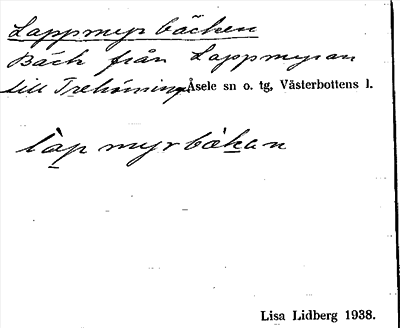 Lappmyrbäcken
Bäck från Lappmyran
till Trehörningen Åsele sn o. tg, Västerbottens l.
làp myr bäkan
Lisa Lidberg 1938.